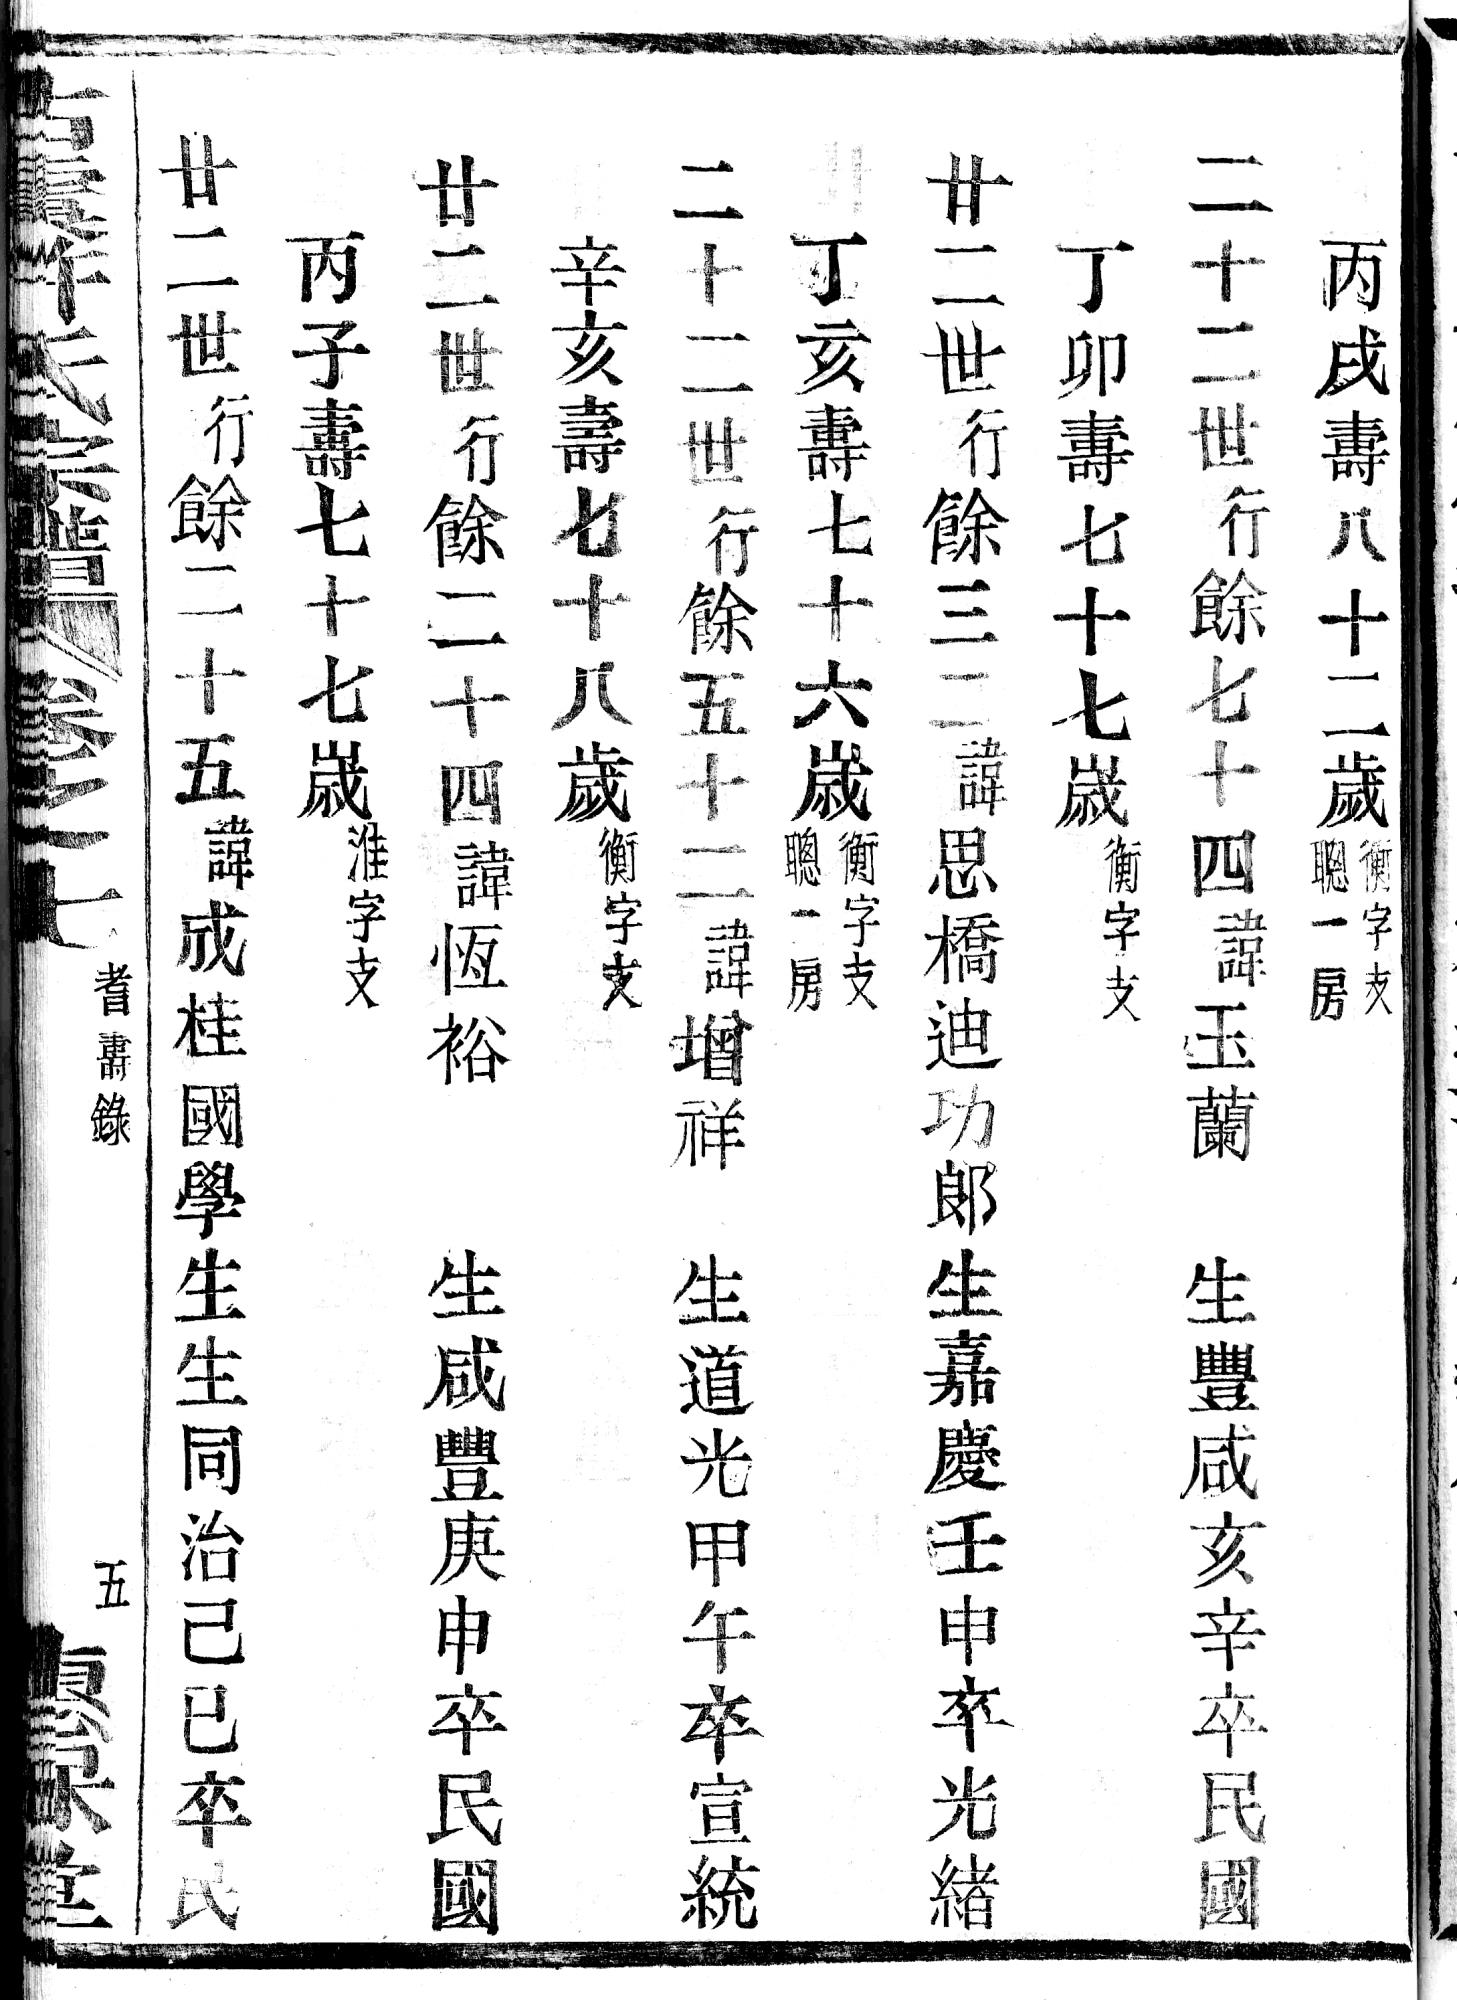 丙戌壽八十二歲衡字支
聰一房
二十二世行餘七十四諱玉蘭　生豐咸亥辛卒民國
丁卯壽七十七歲衡字支
廿二世行餘三二諱思橋迪功郎生嘉慶壬申卒光緒
丁亥壽七十六歲衡字支
聰一房
二十二世行餘五十二諱增祥　生道光甲午卒宣統
辛亥壽七十八歲衡字支
廿二世行餘二十四諱恆裕　生咸豐庚申卒民國
丙子壽七十七歲淮字支
廿二世行餘二十五諱成桂國學生生同治己巳卒民
氏宗譜 卷之七 耆壽錄 五 堂